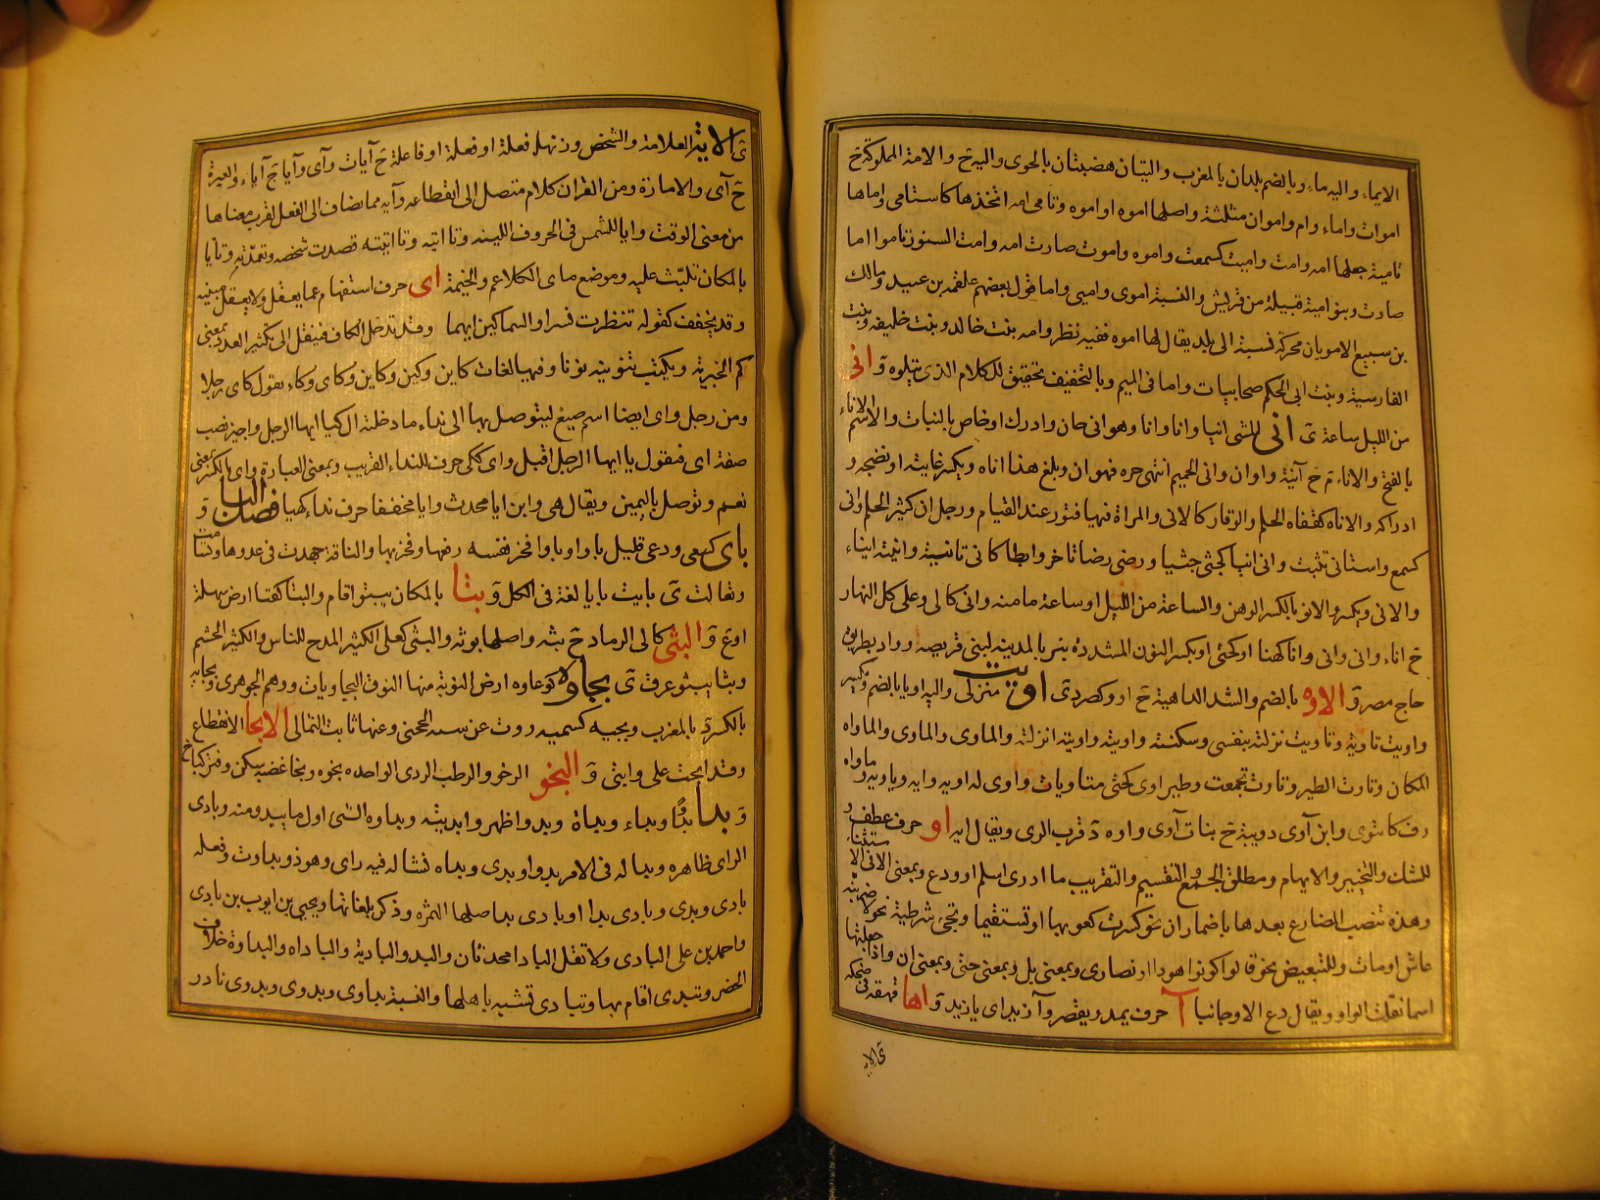 الايماء واليه ماء وبالضم بلدان بالمغرب واليتان هضبتان بالحوى واليه ح والامة المملوكة ح
اموات واماء وام واموان مثلثة واصلها اموه او اموه وتامى امه اتخذها كاستامى واماها
تامية جعلها امه وامت واميت كسمعت واموه واموت صارت امه وامت السنور تاموا اما
صارت وبنو امية قبيلة من قريش والنسبة اموى واميى واما قول بعضهم علقمة بن عبيد ومالك
بن سبيع الامويان محركة نسبة الى بلد يقال لها اموه ففيه نظر وامه بنت خالد وبنت خليفه وبنت
الفارسية وبنت ابى الحكم صحابيات واما فى الميم وبالتخفيف تحقيق للكلام الذى يتلوه و انى
من الليل ساعة ى انى الشى انيا واناء وانا وهو انى حان وادرك او خاص بالنبات والاسم الاناء
بالفتح والاناء م ح آنية واوان وانى الحميم انتهى حره فهو ان وبلغ هذا اناه ويكسر غايته او نضجه و
ادراكه والاناه كقناه الحلم والوقار كالانى والمراة فيها فتور عند القيام ورجل ان كثير الحلم وانى
كسمع واستانى تثبت وانى انيا كجثى جثيا ورضى رضا تاخر وابطا كانى تانية وانيته ايناء
والانى ويكسر والانو بالكسر الوهن والساعة من الليل او ساعة ما منه وانى كالى وعلى كل النهار
ح اناء وانى وانى وانا كهنا او كحتى او بكسر النون المشددة بئر بالمدينة لبنى قريصه وواد بطريق
حاج مصر و الاوه بالضم والشد الداهية ح اوو كصرد ى اويت منزلى واليه اويا بالضم ويكسر
واويت تاوية وتاويت نزلته بنفسى وسكنته واويته واويته انزلته والماوى والماوى والماواه
المكان وتاوت الطير وتاوت تجمعت وطير اوى كجثى متاويات واوى له اوية وايه وماويه وماواه
رق كائتوى وابن آوى دويبة ح بنات آوى واوه ة قرب الرى ويقال ايه او حرف عطف و
للشك والتخيير والابهام ومطلق الجمع والتقسيم والتقريب ما ادرى اسلم او ودع وبمعنى الا فى الاستثناء
وهذه تنصب المضارع بعدها باضمار ان نحو كسرت كعوبها او تستقيما وتجئ شرطية نحو لاضربنه
عاش او مات وللتبعيض نحو قالوا كونوا هودا او نصارى وبمعنى بل وبمعنى حتى وبمعنى ان واذا جعلتها
اسما ثقلت الواو ويقال دع الاو جانبا آ حرف يمد ويقصر وآ زيد اى يا زيد و اها قهقه فى ضحكه
ى الايه
ى الاية العلامة والشخص وزنها فعلة او فعلة او فاعلة ح آيات وآى وآيا جج آياء والعبرة
ح آى والامارة ومن القران كلام متصل الى انقطاعه وآيه مما يضاف الى الفعل لقرب معناها
من معنى الوقت وايا للشمس فى الحروف اللينه وتاايته وتاييته قصدت شخصه وتعمدته وتايا
بالمكان تلبث عليه وموضع ماى الكلا عم والخيمة اى حرف استفهام عما يعقل ولا يعقل مبنيه
وقد يخفف كقوله تنظرت نسرا والسماكين ايهما وقد تدخل الكاف فينقل الى تكثير العدد بمعنى
كم الخبرية ويكتب تنوينه نونا وفيها لغات كاين وكين وكاين وكاى وكاء يقول كاى رجلا
ومن رجل واى ايضا اسم صيغ ليتوصل بها الى نداء ما دخلته ال كيا ايها الرجل واجيز نصب
صفة اى فيقول يا ايها الرجل اقبل واى ككى حرف للنداء القريب وبمعنى العبارة واى بالكسر بمعنى
نعم وتوصل باليمين ويقال هى وابن ايا محدث وايا مخففا حرف نداء كهيا فصل الباء و
باى كسعى ودعى قليل باوا وباوا فخر ونفسه رفعها وفخر بها والناقة جهدت فى عدوها وتسامت
وتعالت ى بايت بايا لغة فى الكل و بتا بالمكان يبتو اقام والبثا كقتا ارض سهلة
او ع و البثى كالى الرماد ح بثه واصلها بوثه والبثى كعلى الكثير المدح للناس والكثير الحشم
وبثا يبثو عرق ى بجاوه كوعاوه ارض النوبة منها النوق البجاويات ووهم الجوهرى وبجايه
بالكسر ة بالمغرب وبجيه كسميه روت عن شيبه الحجبى وعنها ثابت الثمالى الابحا الانقطاع
وقد ابحت على وابثى و البخو الرخو والرطب الردى الواحده بخوه وبخا غضبه سكن وفتر كباخ
و بدا بدوا وبدوا وبداء وبداة وبدو اظهر وابديته وبداوه الشى اول ما يبدو منه وبادى
الراى ظاهره وبدا له فى الامر بدوا وبدى وبداه نشا له فيه راى وهو ذو بداوت وفعله
بادى وبدى وبادى بدا او بادى بدا صلها الهمزه وذكر بلغاتها ويحيى بن ايوب بن بادى
واحمد بن على البادى ولا تقل البادا محدثان والبدو والبادية والباداه والبداوة خلاف
الحضر وتبدى اقام بها وتبادى تشبه باهلها والنسبة بداوى وبدوى وبدوى نادر